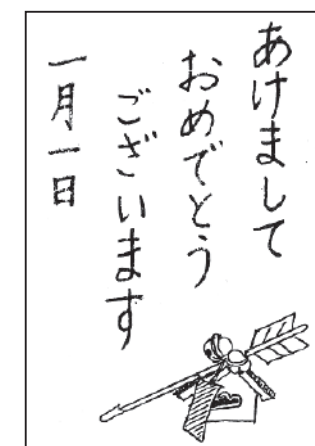 あけまして
おめでとう
ございます
一月一日